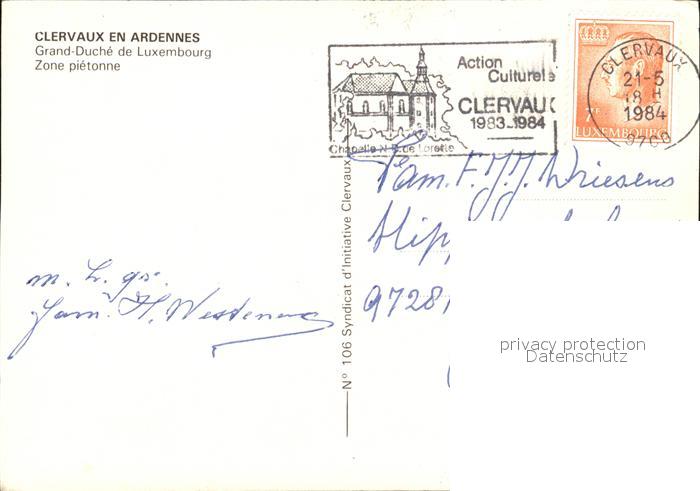 CLERVAUX EN ARDENNES
Grand-Duché de Luxembourg
Zone piétonne
Action
Culturele
CLERVAUX
1983-1984
Chapelle N.D. de Lorette
CLERVAUX
21-5
18 H
1984
9700
7F
LUXEMBOURG
Fam. F. J. J. Driesens
9728
m. h. gr.
Fam. H.
Nº 106 Syndicat d'Initiative Clervaux
privacy protection
Datenschutz